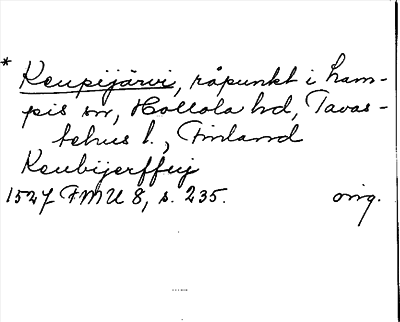 * Keupijärvi, råpunkt i Lam-
pis sn, Hollola hd, Tavas-
tehus l., Finland
Keubijerffuj
1527 FMU 8, s. 235. orig.